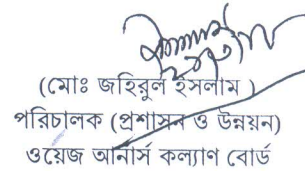 (মোঃ জহিরুল ইসলাম )
পরিচালক (প্রশাসন ও উন্নয়ন)
ওয়েজ আর্নার্স কল্যাণ বোর্ড